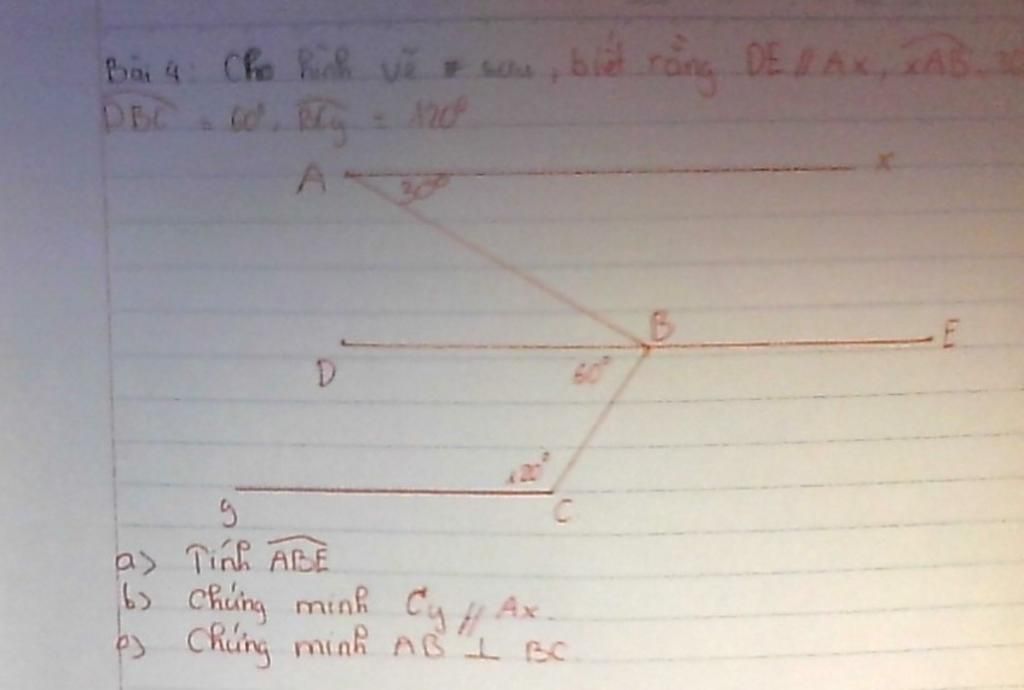 Bài 4: Cho hình vẽ sau, biết rằng DE // Ax, xAB = 30
DBC = 60°, BCy = 120°
A 30° x
B E
D 60°
120°
y C
a) Tính ABE
b) Chứng minh Cy // Ax.
c) Chứng minh AB ⊥ BC